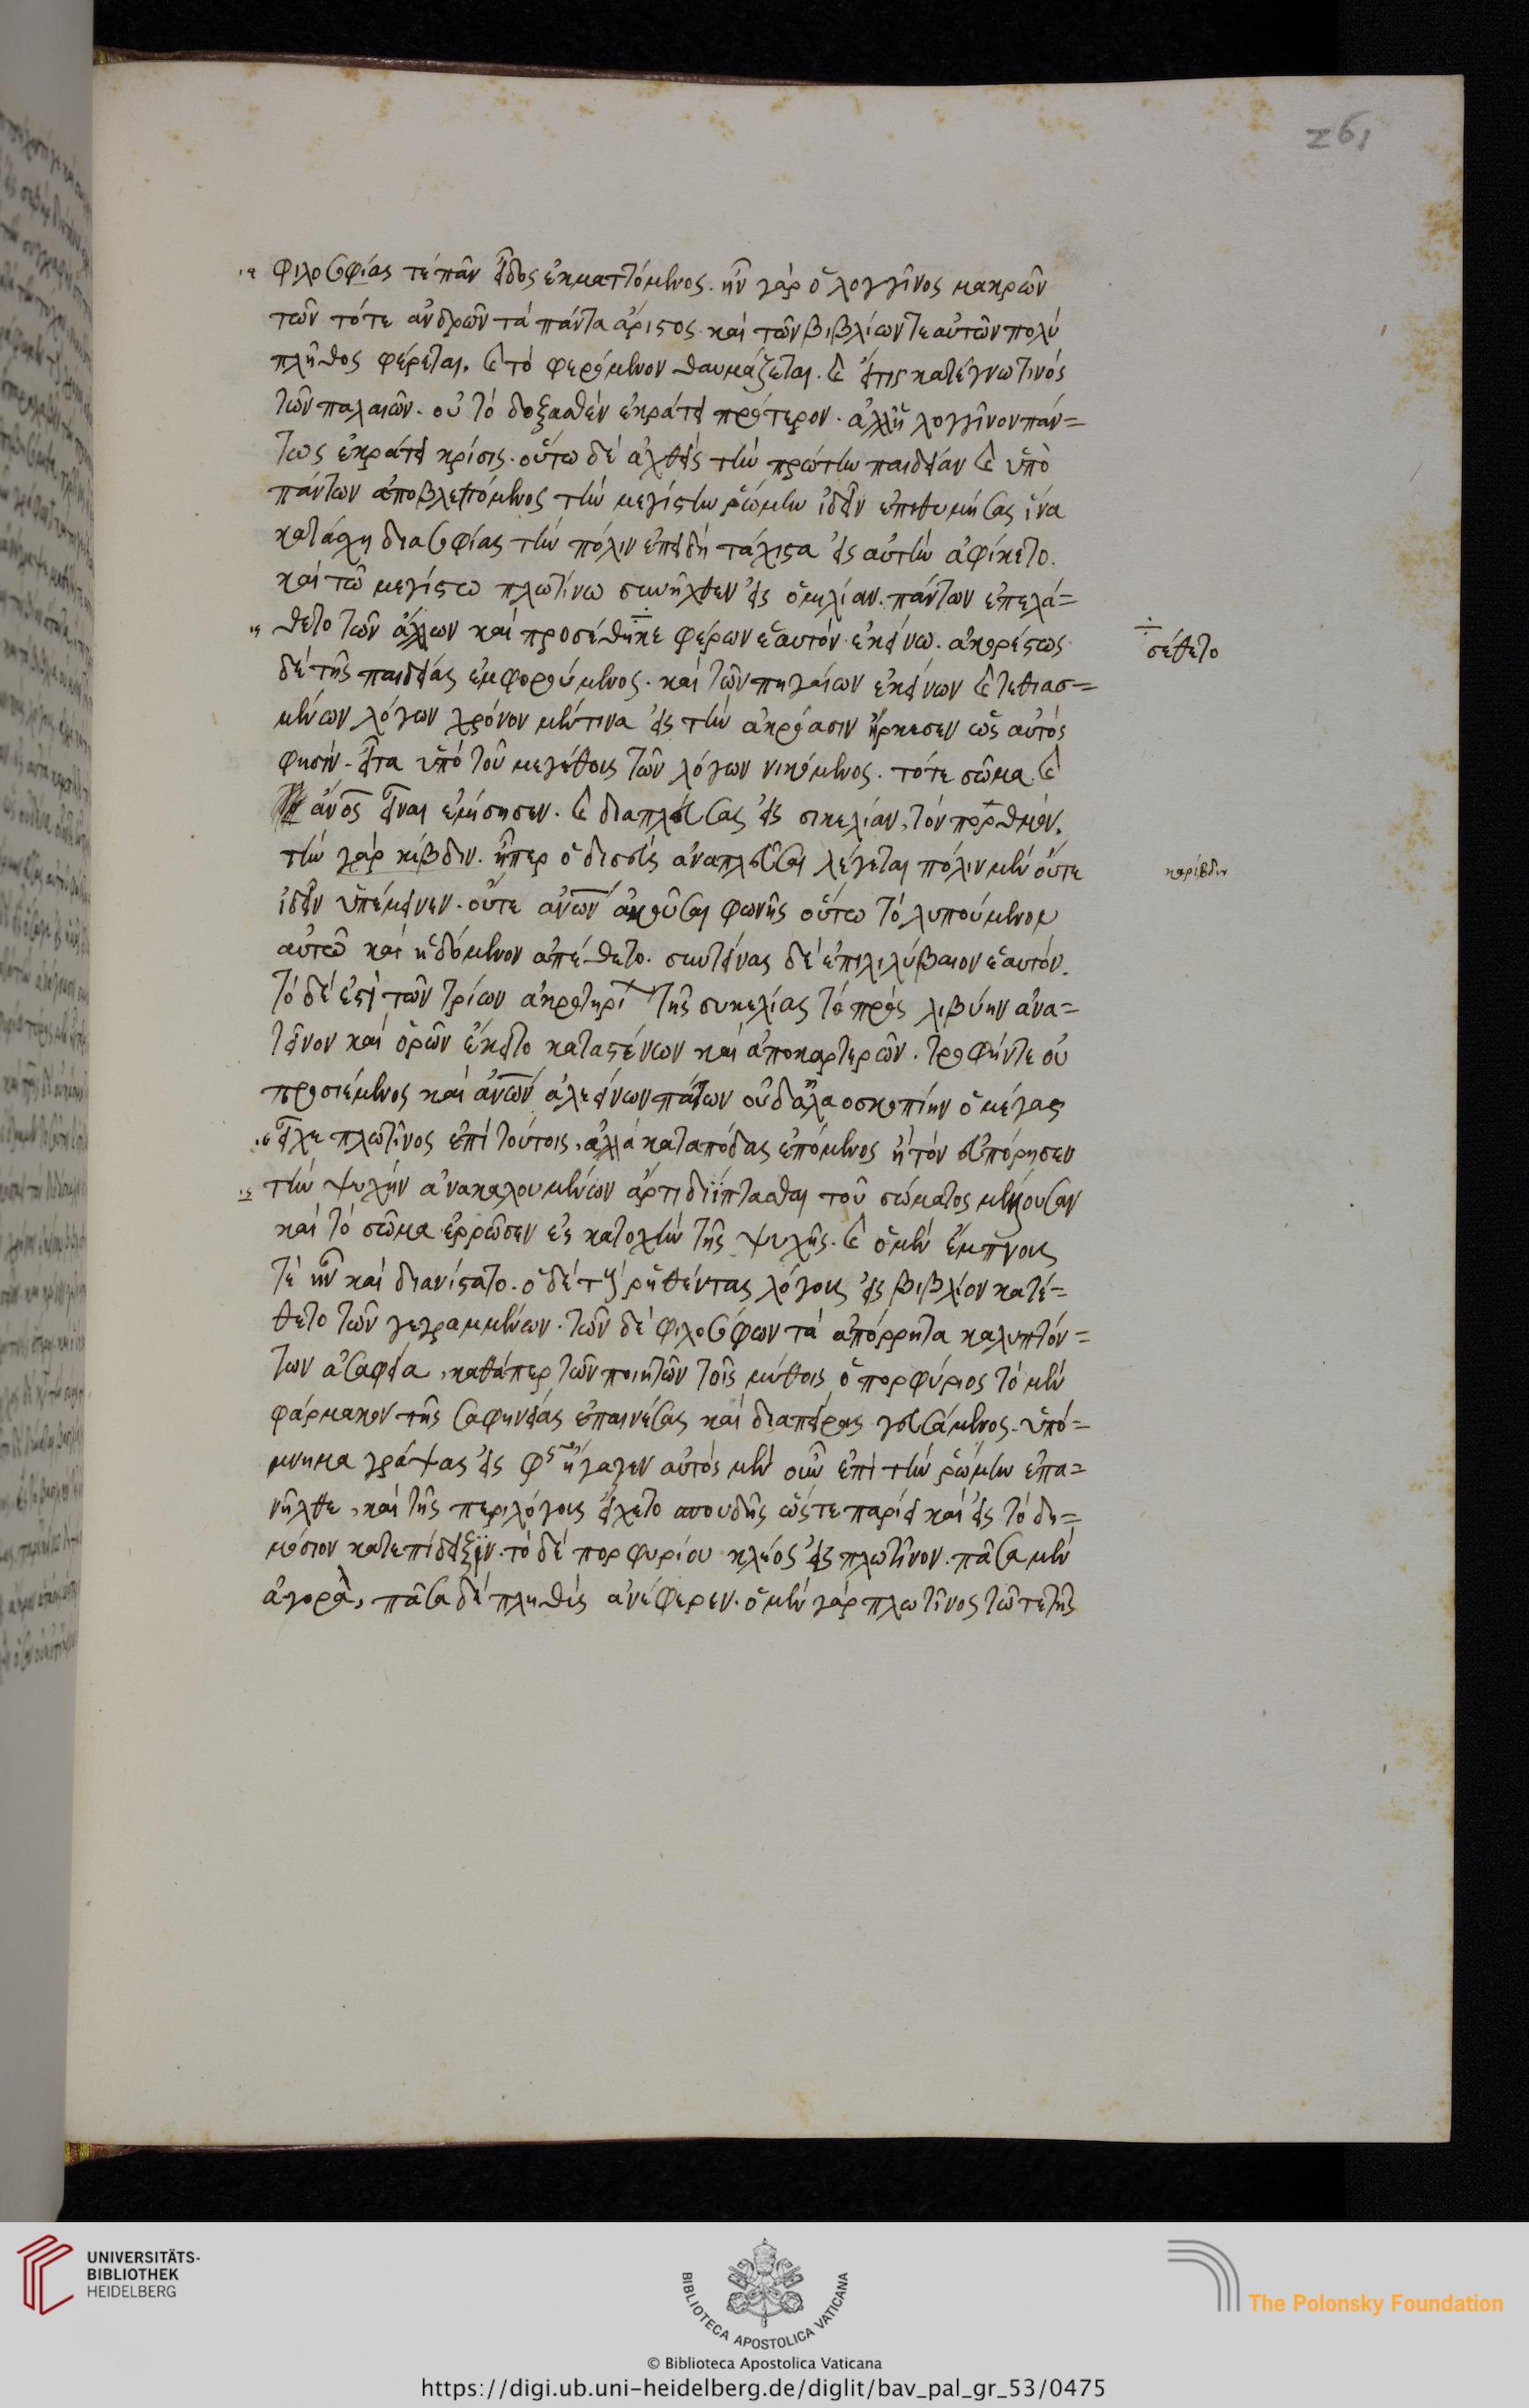 261
φιλοσοφίας τέ πᾶν εἶδος ἐκματτόμενος. ἦν γὰρ ὁ λογγῖνος μακρῶ
τῶν τότε ἀνδρῶν τὰ πάντα ἄριστος. καὶ τῶν βιβλίων τε αὐτῶν πολὺ
πλῆθος φέρεται. καὶ τὸ φερόμενον θαυμάζεται. καὶ εἴτις κατέγνω τινὸς
τῶν παλαιῶν. οὐ τὸ δοξασθὲν ἐκράτει πρότερον. ἀλλ' ἡ λογγίνου πάν=
τως ἐκράτει κρίσις. οὕτω δὲ ἀχθεὶς τὴν πρώτην παιδείαν καὶ ὑπὸ
πάντων ἀποβλεπόμενος τὴν μεγίστην ῥώμην ἰδεῖν ἐπιθυμήσας ἵνα
κατάσχη δια σοφίας τὴν πόλιν ἐπειδὴ τάχιστα εἰς αὐτὴν ἀφίκετο.
καὶ τῶ μεγίστω πλωτίνω συνῆλθεν εἰς ὁμιλίαν. πάντων ἐπελά=
θετο τῶν ἄλλων καὶ προσέθηκε φέρων ἑαυτὸν ἐκείνω. ἀκορέστως
σέθετο
δὲ τῆς παιδείας ἐμφορούμενος. καὶ τῶν πηγαίων ἐκείνων καὶ τεθιασ=
μένων λόγων χρόνον μέν τινα εἰς τὴν ἀκρόασιν ἤρκεσεν ὡς αὐτός
φησίν. εἶτα ὑπὸ τοῦ μεγέθους τῶν λόγων νικώμενος. τότε σῶμα καὶ
ἄνος εἶναι ἐμίσησεν. καὶ διαπλεύσας εἰς σικελίαν, τὸν πορθμόν.
τὴν γὰρ χάβδιν. ἧπερ ὀδισσεὺς ἀναπλεῦσαι λέγεται πόλιν μὲν οὔτε
χαρίβδιν
ἰδεῖν ὑπέμεινεν. οὔτε ἀνων ἀκοῦσαι φωνῆς οὕτω τὸ λυπούμενον
αὐτῶ καὶ ἡδόμενον ἀπέθετο. συντείνας δὲ ἐπι λιλύβαιον ἑαυτόν.
τὸ δέ ἐστι τῶν τρίων ἀκρωτηρι τῆς συκελίας τὸ πρὸς λιβύην ἀνα=
τεῖνον καὶ ὁρῶν ἔκειτο καταστένων καὶ ἀποκαρτερῶν. τροφήν τε οὐ
προσιέμενος καὶ ἀνων ἀλεείνων πάτων οὐδ ἀλαοσκοπίην ὁ μέγας
εἶχε πλωτῖνος ἐπὶ τούτοις. ἀλλὰ καταπόδας ἑπόμενος ἢ τὸν εὐπόρησεν
τὴν ψυχὴν ἀνακαλουμένων ἄρτι διΐπτασθαι τοῦ σώματος μέλλουσαν
καὶ τὸ σῶμα ἔρρωσεν ἐς κατοχὴν τῆς ψυχῆς. καὶ ὁ μὲν ἔμπνους
τὲ ἦν καὶ διανίστατο. ὁ δὲ τοὺς ῥηθέντας λόγους εἰς βιβλίον κατέ=
θετο τῶν γεγραμμένων. τῶν δὲ φιλοσόφων τὰ ἀπόρρητα καλυπτόν=
των ἀσαφεία, καθάπερ τῶν ποιητῶν τοῖς μύθοις ὁ πορφύριος τὸ μὲν
φάρμακον τῆς σαφηνείας ἐπαινέσας καὶ διαπείρας γευσάμενος. ὑπό=
μνημα γράψας εἰς φς ἤγαγεν αὐτὸς μὲν οὖν ἐπὶ τὴν ῥώμην ἐπα=
νῆλθε, καὶ τῆς περιλόγους εἴχετο σπουδῆς ὥστε παρίει καὶ εἰς τὸ δη=
μόσιον κατεπίδειξιν. τὸ δὲ πορφυρίου κλέος εἰς πλωτῖνον. πᾶσα μὲν
ἀγορὰ, πᾶσα δὲ πληθὺς ἀνέφερεν. ὁ μὲν γὰρ πλωτῖνος τῶ τε τῆς
UNIVERSITÄTS-
BIBLIOTHEK
HEIDELBERG
BIBLIOTECA APOSTOLICA VATICANA
The Polonsky Foundation
© Biblioteca Apostolica Vaticana
https://digi.ub.uni-heidelberg.de/diglit/bav_pal_gr_53/0475